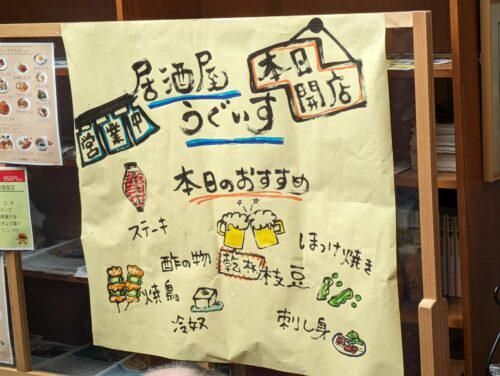 居酒屋
うぐいす
本日
開店
営業中
本日のおすすめ
ステーキ
乾杯
酢の物
枝豆
ほっけ焼き
焼鳥
冷奴
刺し身
950円